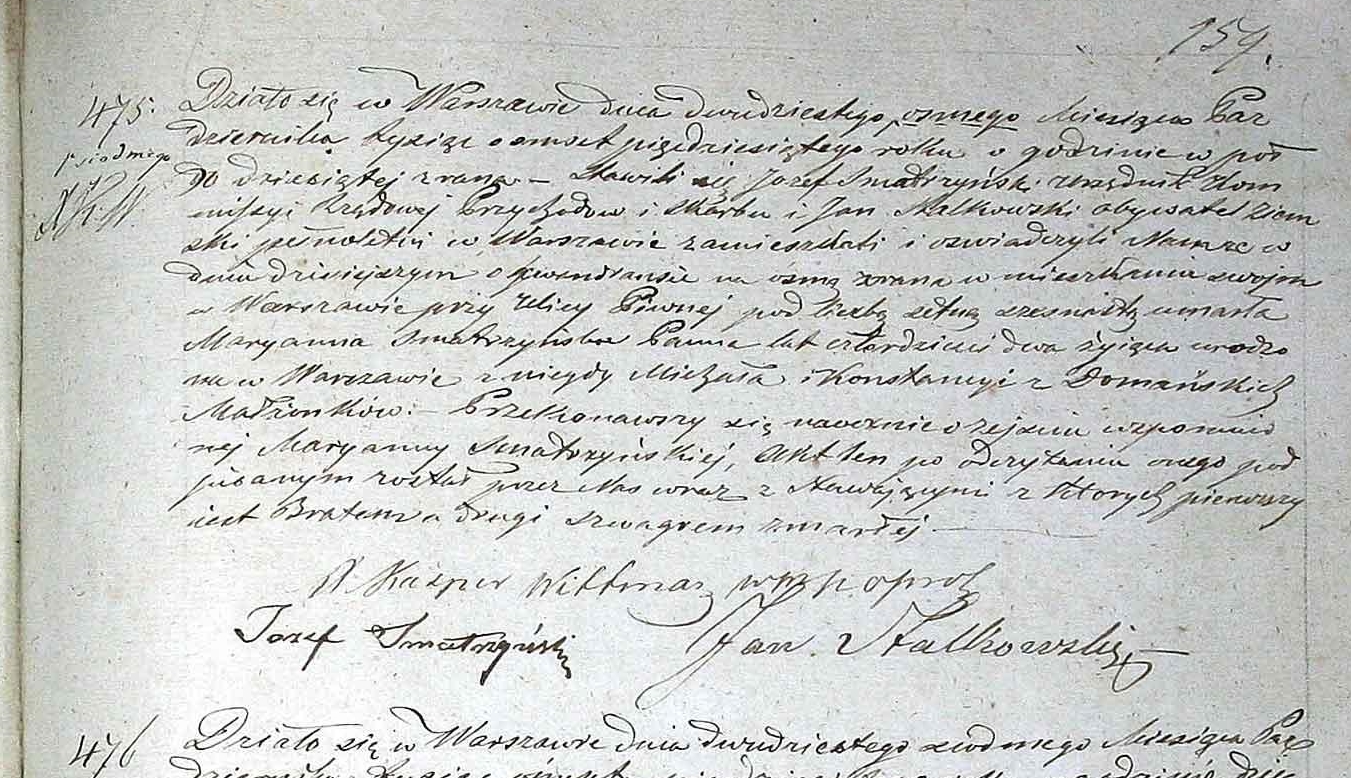 159.
475.
siódmego
X. K. W.
Działo się w Warszawie dnia dwudziestego osmego Miesiąca Paz
dziernika tysiąc osmset pięcdziesiątego roku o godzinie w poł
do dziesiątej z rana. – Stawili się Jozef Smatrzyński urzędnik Kom
missyi Rządowej Przychodow i Skarbu i Jan Stalkowski obywatel Ziem
ski pełnoletni w Warszawie zamieszkali i oswiadczyli Nam że w
dniu dzisiejszym o kwandransie na osmą zrana w mieszkaniu swojem
w Warszawie przy Ulicy Piwnej pod liczbą setną szesnastą umarła
Maryanna Smatrzyńska Panna lat czterdzieści dwa żyjąca urodzo
na w Warszawie z niegdy Michała i Konstancyi z Domańskich
Małżonków. – Przekonawszy się naocznie o zejsciu wspomnio
nej Maryanny Smatrzyńskiej, Akt ten po odczytaniu onego pod
pisanym został przez Nas wraz z Stawającymi z których pierwszy
iest Bratem a drugi szwagrem zmarłej. –
X Kasper Wittman
Jozef Smatrzyński
Jan Stalkowski
476
Działo się w Warszawie dnia dwudziestego siodmego Miesiąca Paz
dziernika tysiąc osmset